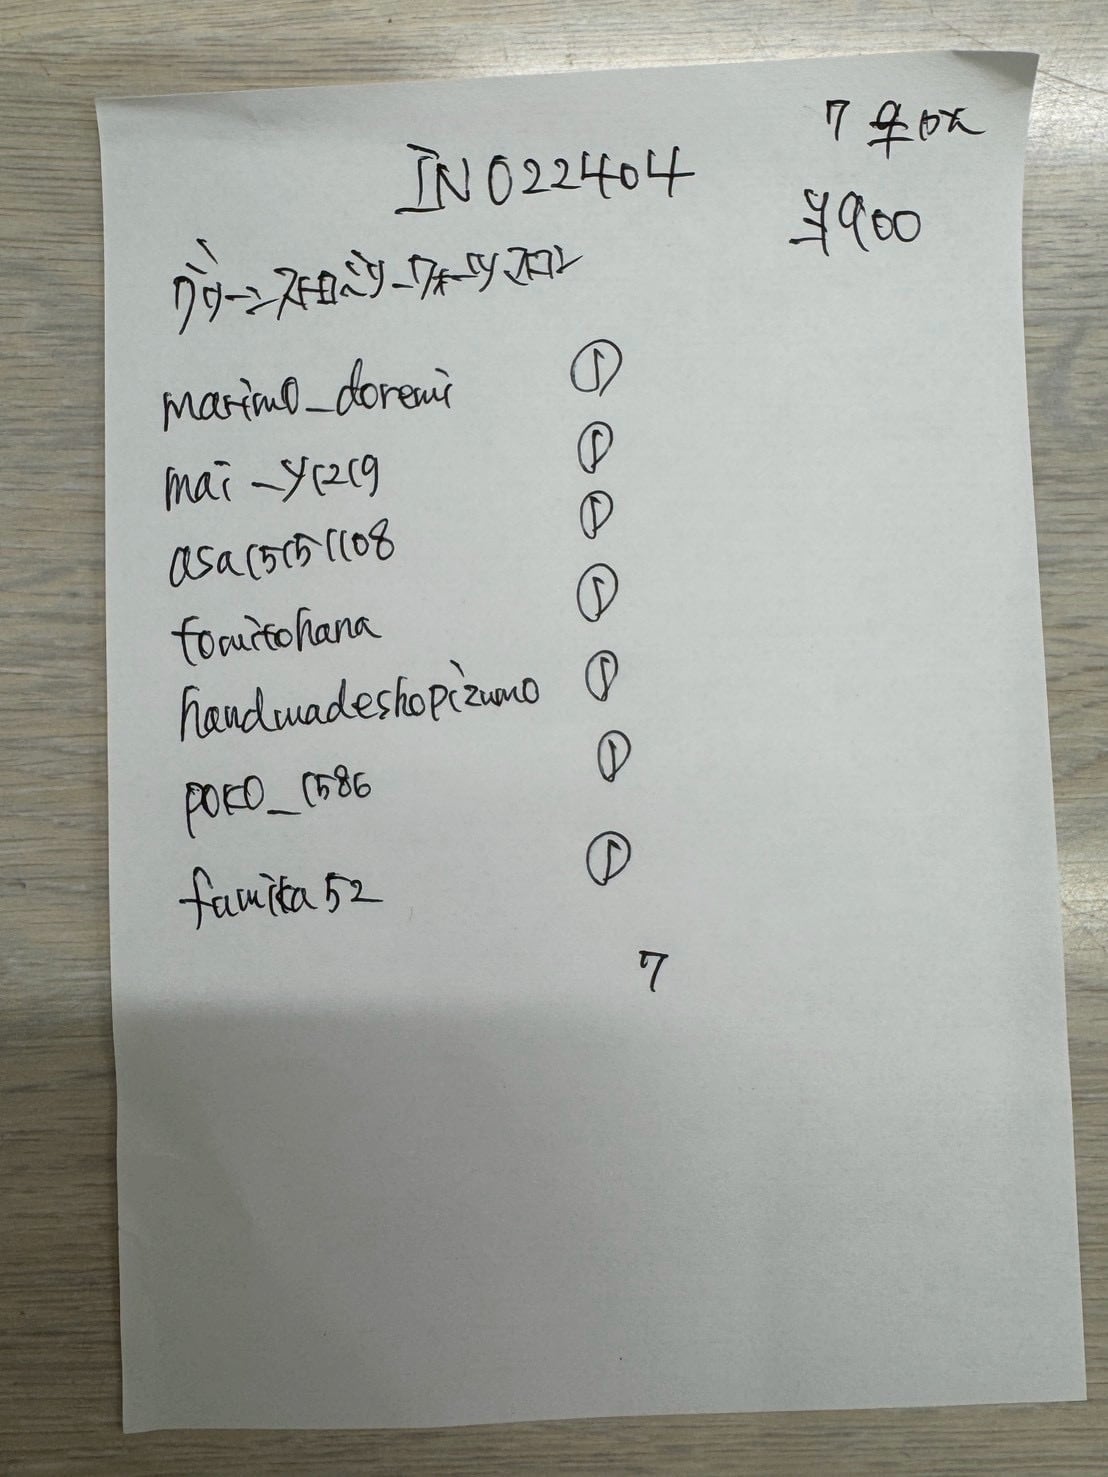 7 个pcs
IN022404
¥900
グリーンストロベリークォーツ スロン
marimo_doremi ①
mai_y1219 ①
asa15151108 ①
tomitohana ①
handmadeshopizumo ①
poko_1586 ①
fumika52 ①
7